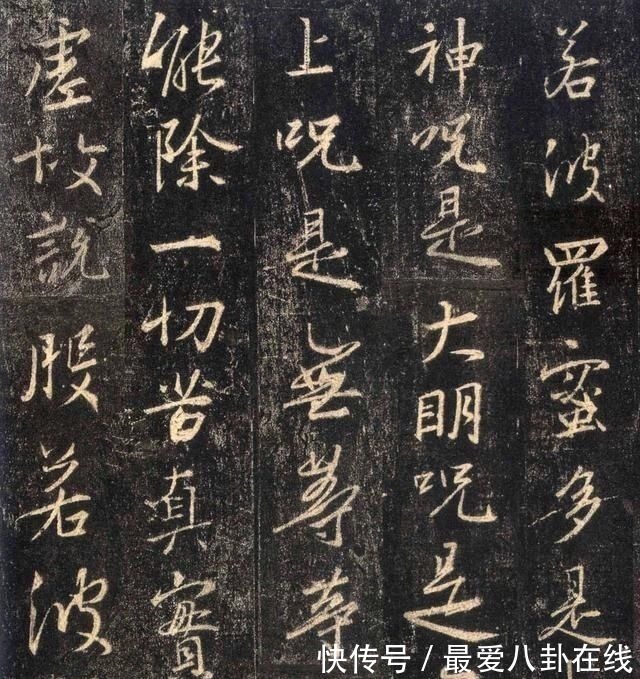 若波羅蜜多是
神呪是大明呪是
上呪是無等等
能除一切苦真實
虛故說般若波
快传号 / 最爱八卦在线